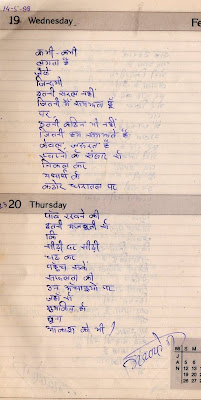 14-5-98
19 Wednesday
Fe
कभी-कभी
लगता है
जैसे
जिन्दगी
इतनी सरल नहीं
जितनी मैं समझता हूँ
पर
इतनी कठिन भी नहीं
जितनी हम समझते हैं
केवल, जरूरत है
सपनों के संसार से
निकल कर
यथार्थ के
कठोर धरातल पर
20 Thursday
पांव रखने की
इतनी मजबूती से
कि
सीढ़ी दर सीढ़ी
चढ़ कर
पहुंच सकें
सफलता की
उन ऊंचाइयों पर
जहाँ से
मुखरित हो
खुला
आकाश को भी!
M S
J
A 5
N 12
19
26